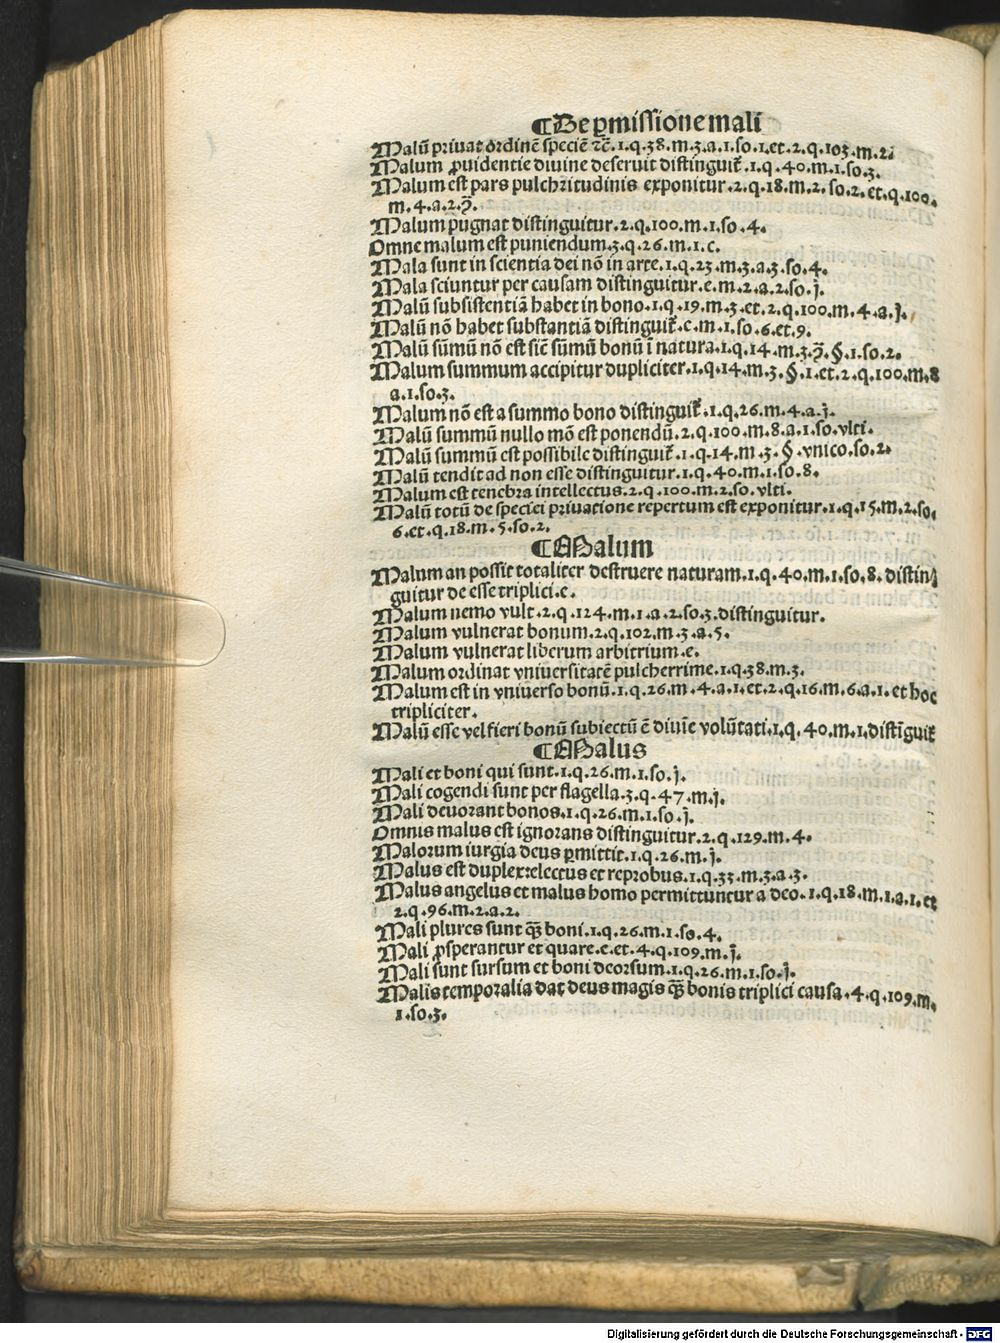 ¶De ꝑmissione mali
Malū priuat ordinē speciē ⁊c̄.1.q.38.m.3.a.1.so.1.et.2.q.103.m.2.
Malum ꝓuidentie diuine deseruit distinguit᷑.1.q.40.m.1.so.3.
Malum est pars pulchritudinis exponitur.2.q.18.m.2.so.2.et.q.100.
m.4.a.2.
Malum pugnat distinguitur.2.q.100.m.1.so.4.
Omne malum est puniendum.3.q.26.m.1.c.
Mala sunt in scientia dei nō in arte.1.q.23.m.3.a.3.so.4.
Mala sciuntur per causam distinguitur.e.m.2.a.2.so.j.
Malū subsistentiā habet in bono.1.q.19.m.3.et.2.q.100.m.4.a.j.
Malū nō habet substantiā distinguit᷑.e.m.1.so.6.et.9.
Malū sūmū nō est sic̄ sūmū bonū ī natura.1.q.14.m.3.ꝑ.§.1.so.2.
Malum summum accipitur dupliciter.1.q.14.m.3.§.1.et.2.q.100.m.8
a.1.so.3.
Malum nō est a summo bono distinguit᷑.1.q.26.m.4.a.j.
Malū summū nullo mō est ponendū.2.q.100.m.8.a.1.so.vlti.
Malū summū est possibile distinguit᷑.1.q.14.m.3.§.vnico.so.2.
Malū tendit ad non esse distinguitur.1.q.40.m.1.so.8.
Malum est tenebra intellectus.2.q.100.m.2.so.vlti.
Malū totū de speciei priuatione repertum est exponitur.1.q.15.m.2.so.
6.et.q.18.m.5.so.2.
¶Malum
Malum an possit totaliter destruere naturam.1.q.40.m.1.so.8.distin⸗
guitur de esse triplici.e.
Malum nemo vult.2.q.124.m.1.a.2.so.3.distinguitur.
Malum vulnerat bonum.2.q.102.m.3.a.5.
Malum vulnerat liberum arbitrium.e.
Malum ordinat vniuersitatē pulcherrime.1.q.38.m.3.
Malum est in vniuerso bonū.1.q.26.m.4.a.1.et.2.q.16.m.6.a.1.et hoc
tripliciter.
Malū esse vel fieri bonū subiectū ē diuīe volūtati.1.q.40.m.1.distīguit᷑
¶Malus
Mali et boni qui sunt.1.q.26.m.1.so.j.
Mali cogendi sunt per flagella.3.q.47.m.j.
Mali deuorant bonos.1.q.26.m.1.so.j.
Omnis malus est ignorans distinguitur.2.q.129.m.4.
Malorum iurgia deus ꝑmittit.1.q.26.m.j.
Malus est duplex:electus et reprobus.1.q.33.m.3.a.3.
Malus angelus et malus homo permittuntur a deo.1.q.18.m.1.a.1.et
2.q.96.m.2.a.2.
Mali plures sunt q̄ꝫ boni.1.q.26.m.1.so.4.
Mali ꝓsperantur et quare.e.et.4.q.109.m.j.
Mali sunt sursum et boni deorsum.1.q.26.m.1.so.j.
Malis temporalia dat deus magis q̄ꝫ bonis triplici causa.4.q.109.m.
1.so.3.
Digitalisierung gefördert durch die Deutsche Forschungsgemeinschaft - DFG